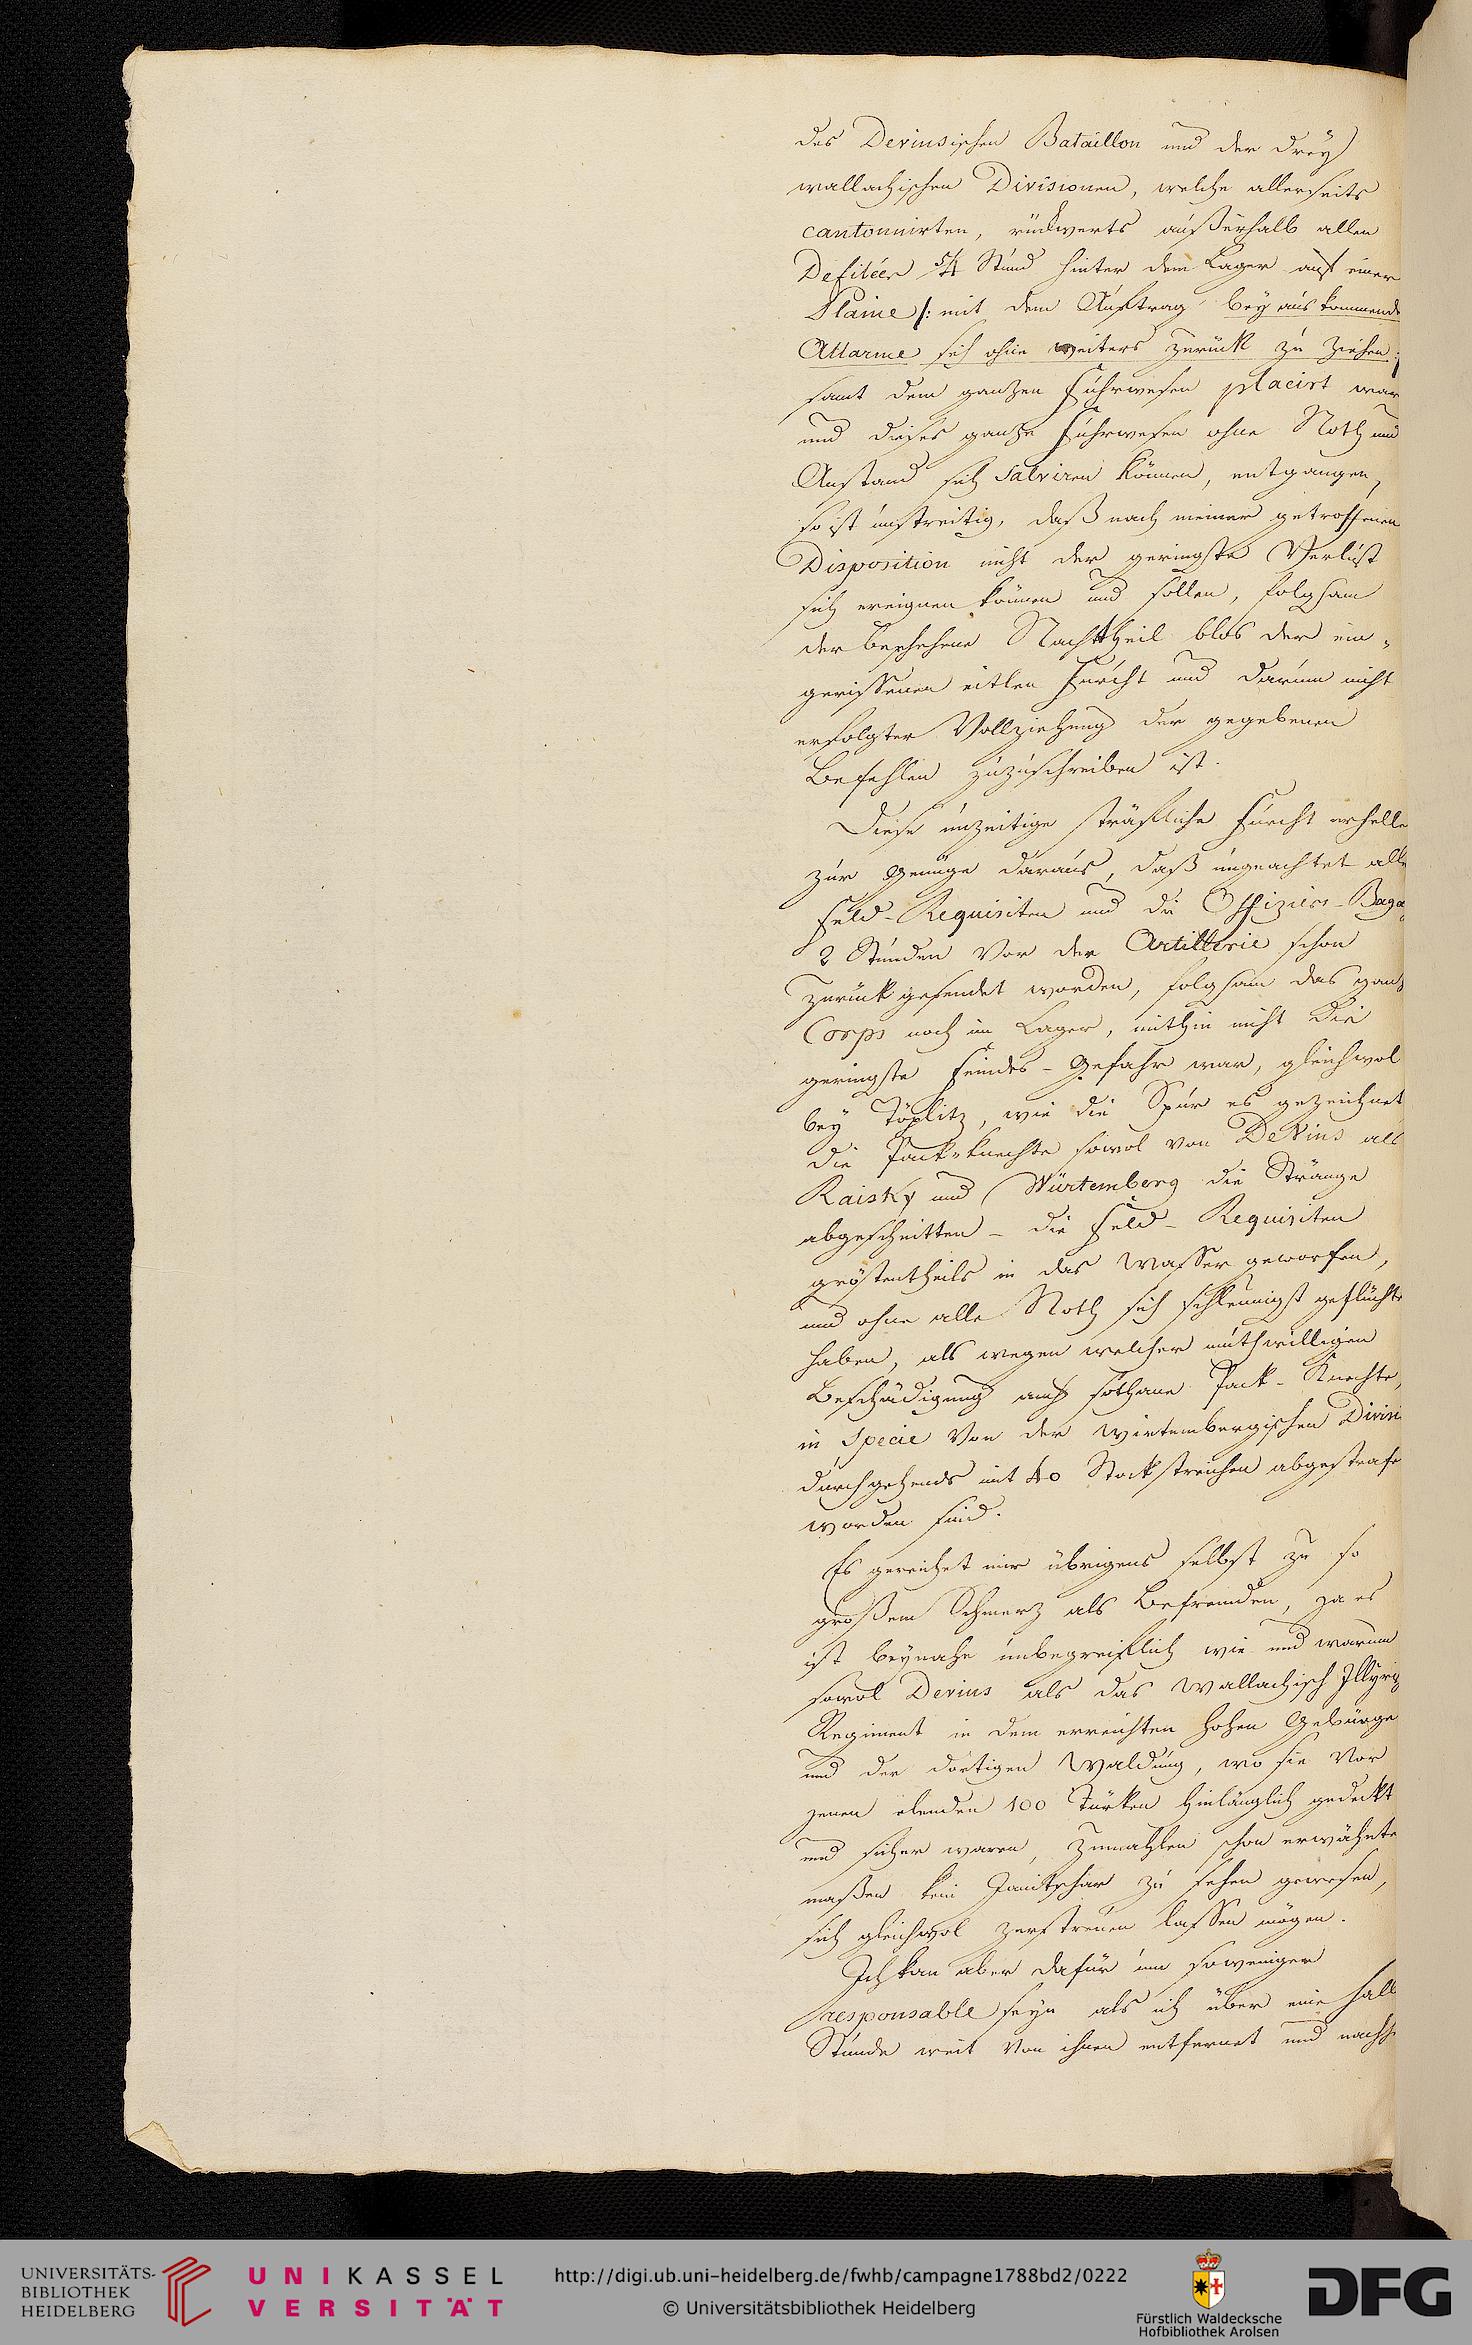 des Devinsischen Bataillon und der drey
wallachischen Divisionen, welche allerseits
cantonnirten, rückwerts außerhalb allen
Defiléen 5/4 Stund hinter dem Lager auf einer
Plaine /: mit dem Auftrag bey auskommende
Allarme sich ohne weiters zurück zu ziehen :/
samt dem ganzen Fuhrwesen placirt war
und dieses ganze Fuhrwesen ohne Noth und
Anstand sich salviren können, entgangen,
so ist unstreitig, daß nach meiner getroffenen
Disposition nicht der geringste Verlust
sich ereignen können und sollen, folgsam
der beschehene Nachttheil blos der ein„
gerissenen eitlen Furcht und darum nicht
erfolgter Vollziehung der gegebenen
Befehlen zuzuschreiben ist.
Diese unzeitige sträfliche Furcht erhelle
zur Genüge daraus, daß ungeachtet alle
Feld-Requisiten und die Offiziers-Baga
2 Stunden vor der Artillerie schon
zurückgesendet worden, folgsam das ganz
Corps noch im Lager, mithin nicht die
geringste Feindes-Gefahr war, gleichwol
bey Töplitz, wie die Spur es gezeichnet
die Pack-knechte sowol von DeVins als
Raisky und Würtemberg die Stränge
abgeschnitten - die Feld-Requisiten
gröstentheils in das Wasser geworfen,
und ohne alle Noth sich schleunigst geflüchte
haben, als wegen welcher muthwilligen
Beschädigung auch sothane Pack-Knechte,
in Specie von der wirtembergischen Divisi
durchgehends mit 40 Stockstreichen abgestraft
worden sind.
Es gereichet mir übrigens selbst zu so
großem Schmerz als Befremden, ja es
ist beynahe unbegreiflich wie und warum
sowol Devins als das Wallachisch Illyrisch
Regiment in dem erreichten hohen Gebürge
und der dortigen Waldung, wo sie vor
jenen elenden 100 Türken hinlänglich gedeckt
und sicher waren, zumahlen schon erwähnte
maßen kein Janitschar zu sehen gewesen,
sich gleichwol zerstreuen lassen mögen.
Ich kan aber dafür um soweniger
responsable seyn als ich über eine halb
Stunde weit von ihnen entfernet und nachh
UNIVERSITÄTS-
BIBLIOTHEK
HEIDELBERG
UNIKASSEL
VERSITÄT
http://digi.ub.uni-heidelberg.de/fwhb/campagne1788bd2/0222
© Universitätsbibliothek Heidelberg
Fürstlich Waldecksche
Hofbibliothek Arolsen
DFG